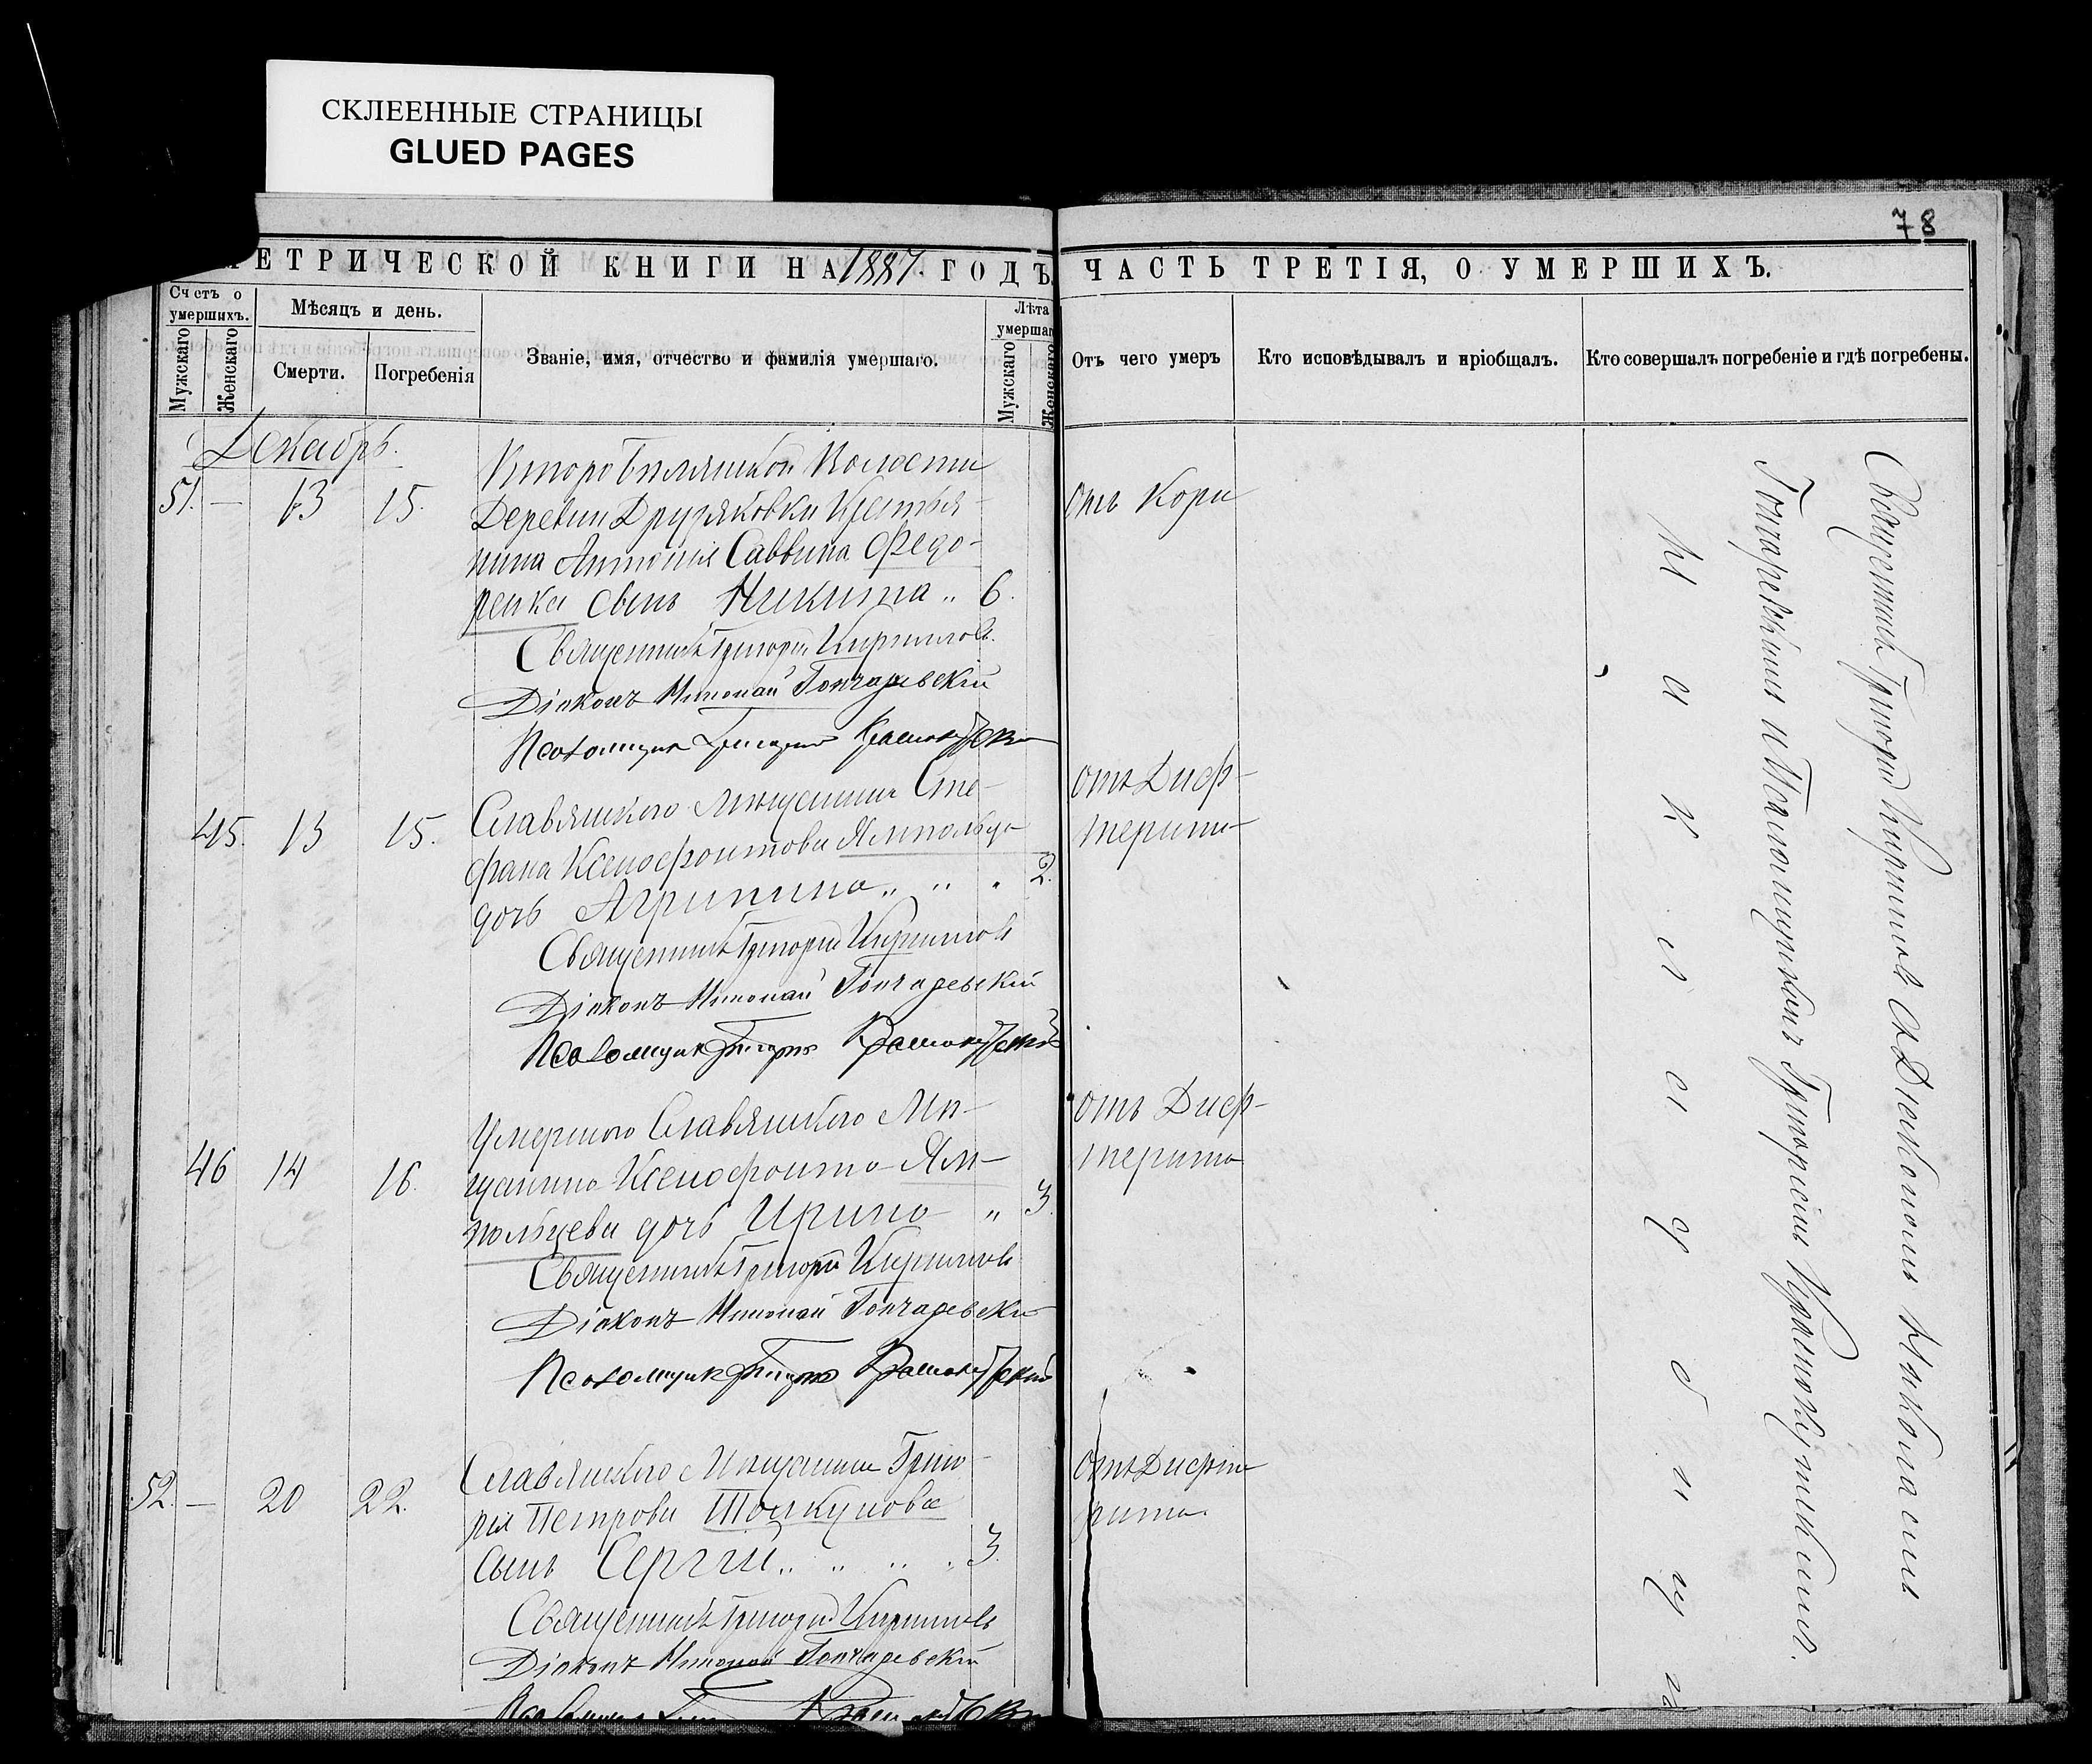 СКЛЕЕННЫЕ СТРАНИЦЫ
GLUED PAGES
78
ЕТРИЧЕСКОЙ КНИГИ НА 1887 ГОДЪ,
ЧАСТЬ ТРЕТІЯ, О УМЕРШИХЪ.
Счетъ о умершихъ.
Мужскаго
Женскаго
Мѣсяцъ и день.
Смерти.
Погребенія
Званіе, имя, отчество и фамилія умершаго.
Лѣта умершаг
Мужскаго
Женскаго
Отъ чего умеръ
Кто исповѣдывалъ и пріобщалъ.
Кто совершалъ погребеніе и гдѣ погребены.
Декабрь.
51. — 13 15.
Волости
Деревни Друзяковки Крестья-
нина Антонія Саввина Федо-
ренка сынъ Никита „ 6.
отъ Кори
Священникъ Григорій Кирилловъ
Діаконъ Николай Гончаревскій
Псаломщикъ Григорій
45. 13 15.
Славянскаго Мѣщанина Сте-
фана Ксенофонтова Ямпольца
дочь Агрипина „ „ „ 2.
отъ Диф-
терита
Священникъ Григорій Кирилловъ
Діаконъ Николай Гончаревскій
Псаломщикъ Григорій
46 14 16.
Умершаго Славянскаго Мѣ-
щанина Ксенофонта Ям-
польцева дочь Ирина „ 3.
отъ Диф-
терита
Священникъ Григорій Кирилловъ
Діаконъ Николай Гончаревскій
Псаломщикъ Григорій
52. — 20 22.
Славянскаго Мѣщанина Григо-
рія Петрова Толкунова
сынъ Сергій „ „ „ „ 3.
отъ Дифте-
рита.
Священникъ Григорій Кирилловъ
Діаконъ Николай Гончаревскій
Псаломщикъ
Священникъ Григорій Кирилловъ съ Діакономъ Николаемъ
Гончаревскимъ и Псаломщикомъ Григоріемъ